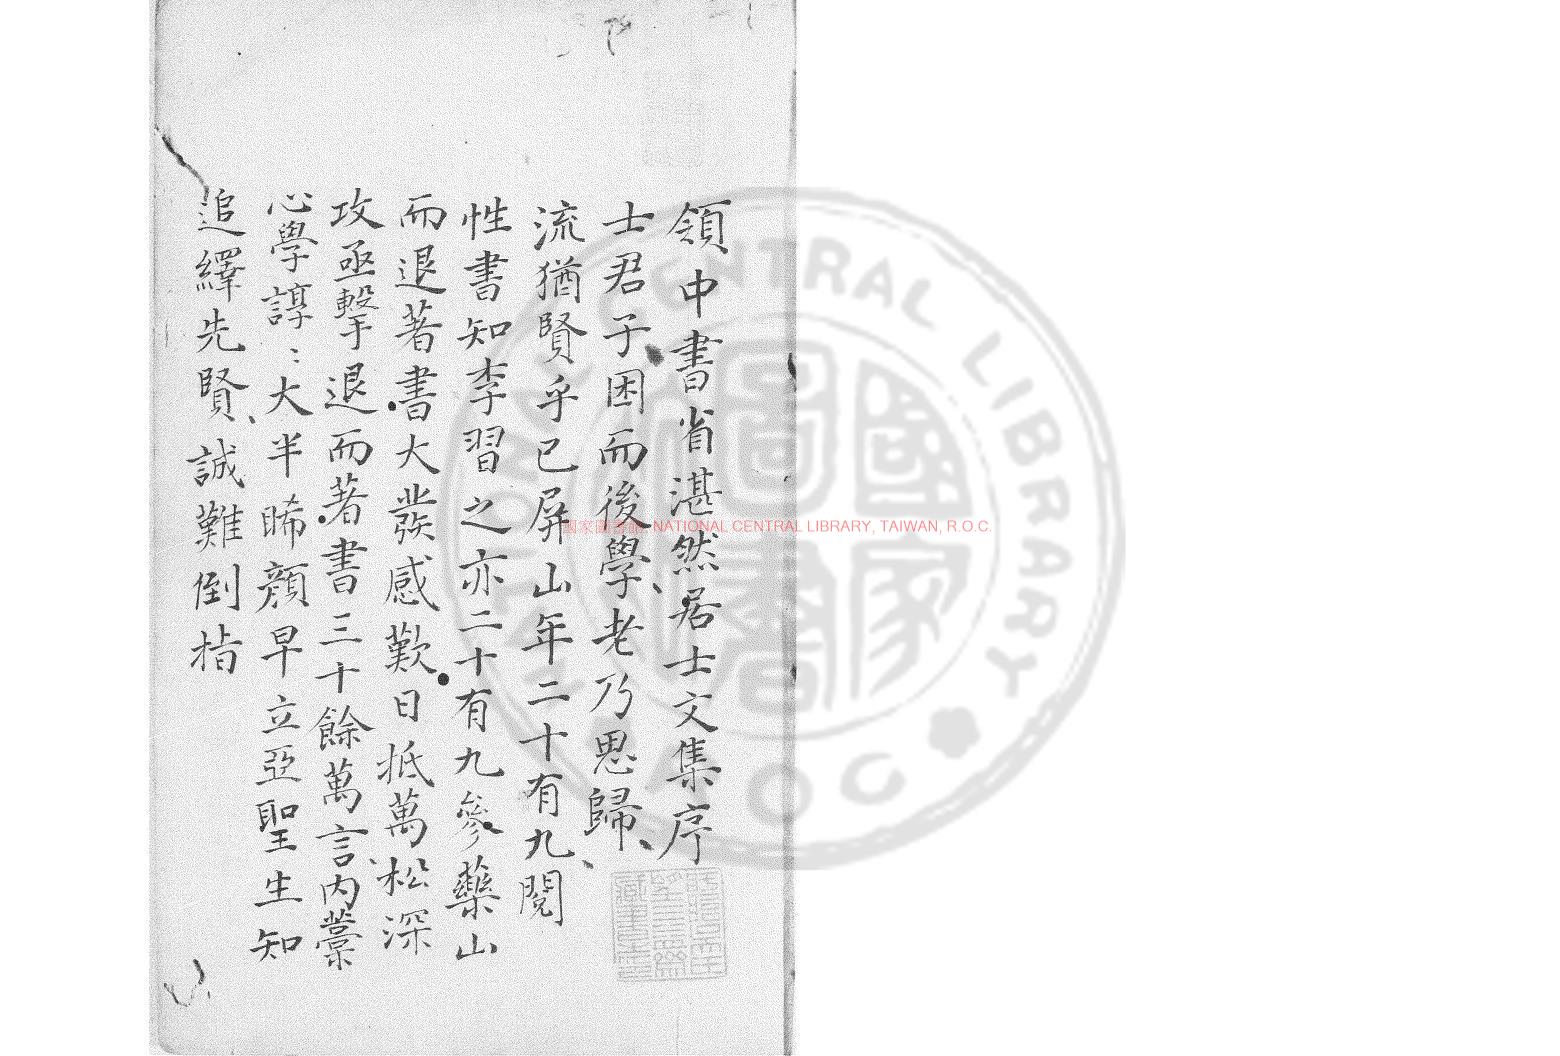 領中書省湛然居士文集序
士君子困而後學老乃思歸
流猶賢乎已屏山年二十有九閱
性書知李習之亦二十有九參藥山
而退著書大發感歎日抵萬松深
攻亟擊退而著書三十餘萬言內藁
心學諄〻大半晞顏早立亞聖生知
追繹先賢誠難倒指
國家圖書館 NATIONAL CENTRAL LIBRARY, TAIWAN, R.O.C.
NATIONAL CENTRAL LIBRARY
R O C
國家圖書